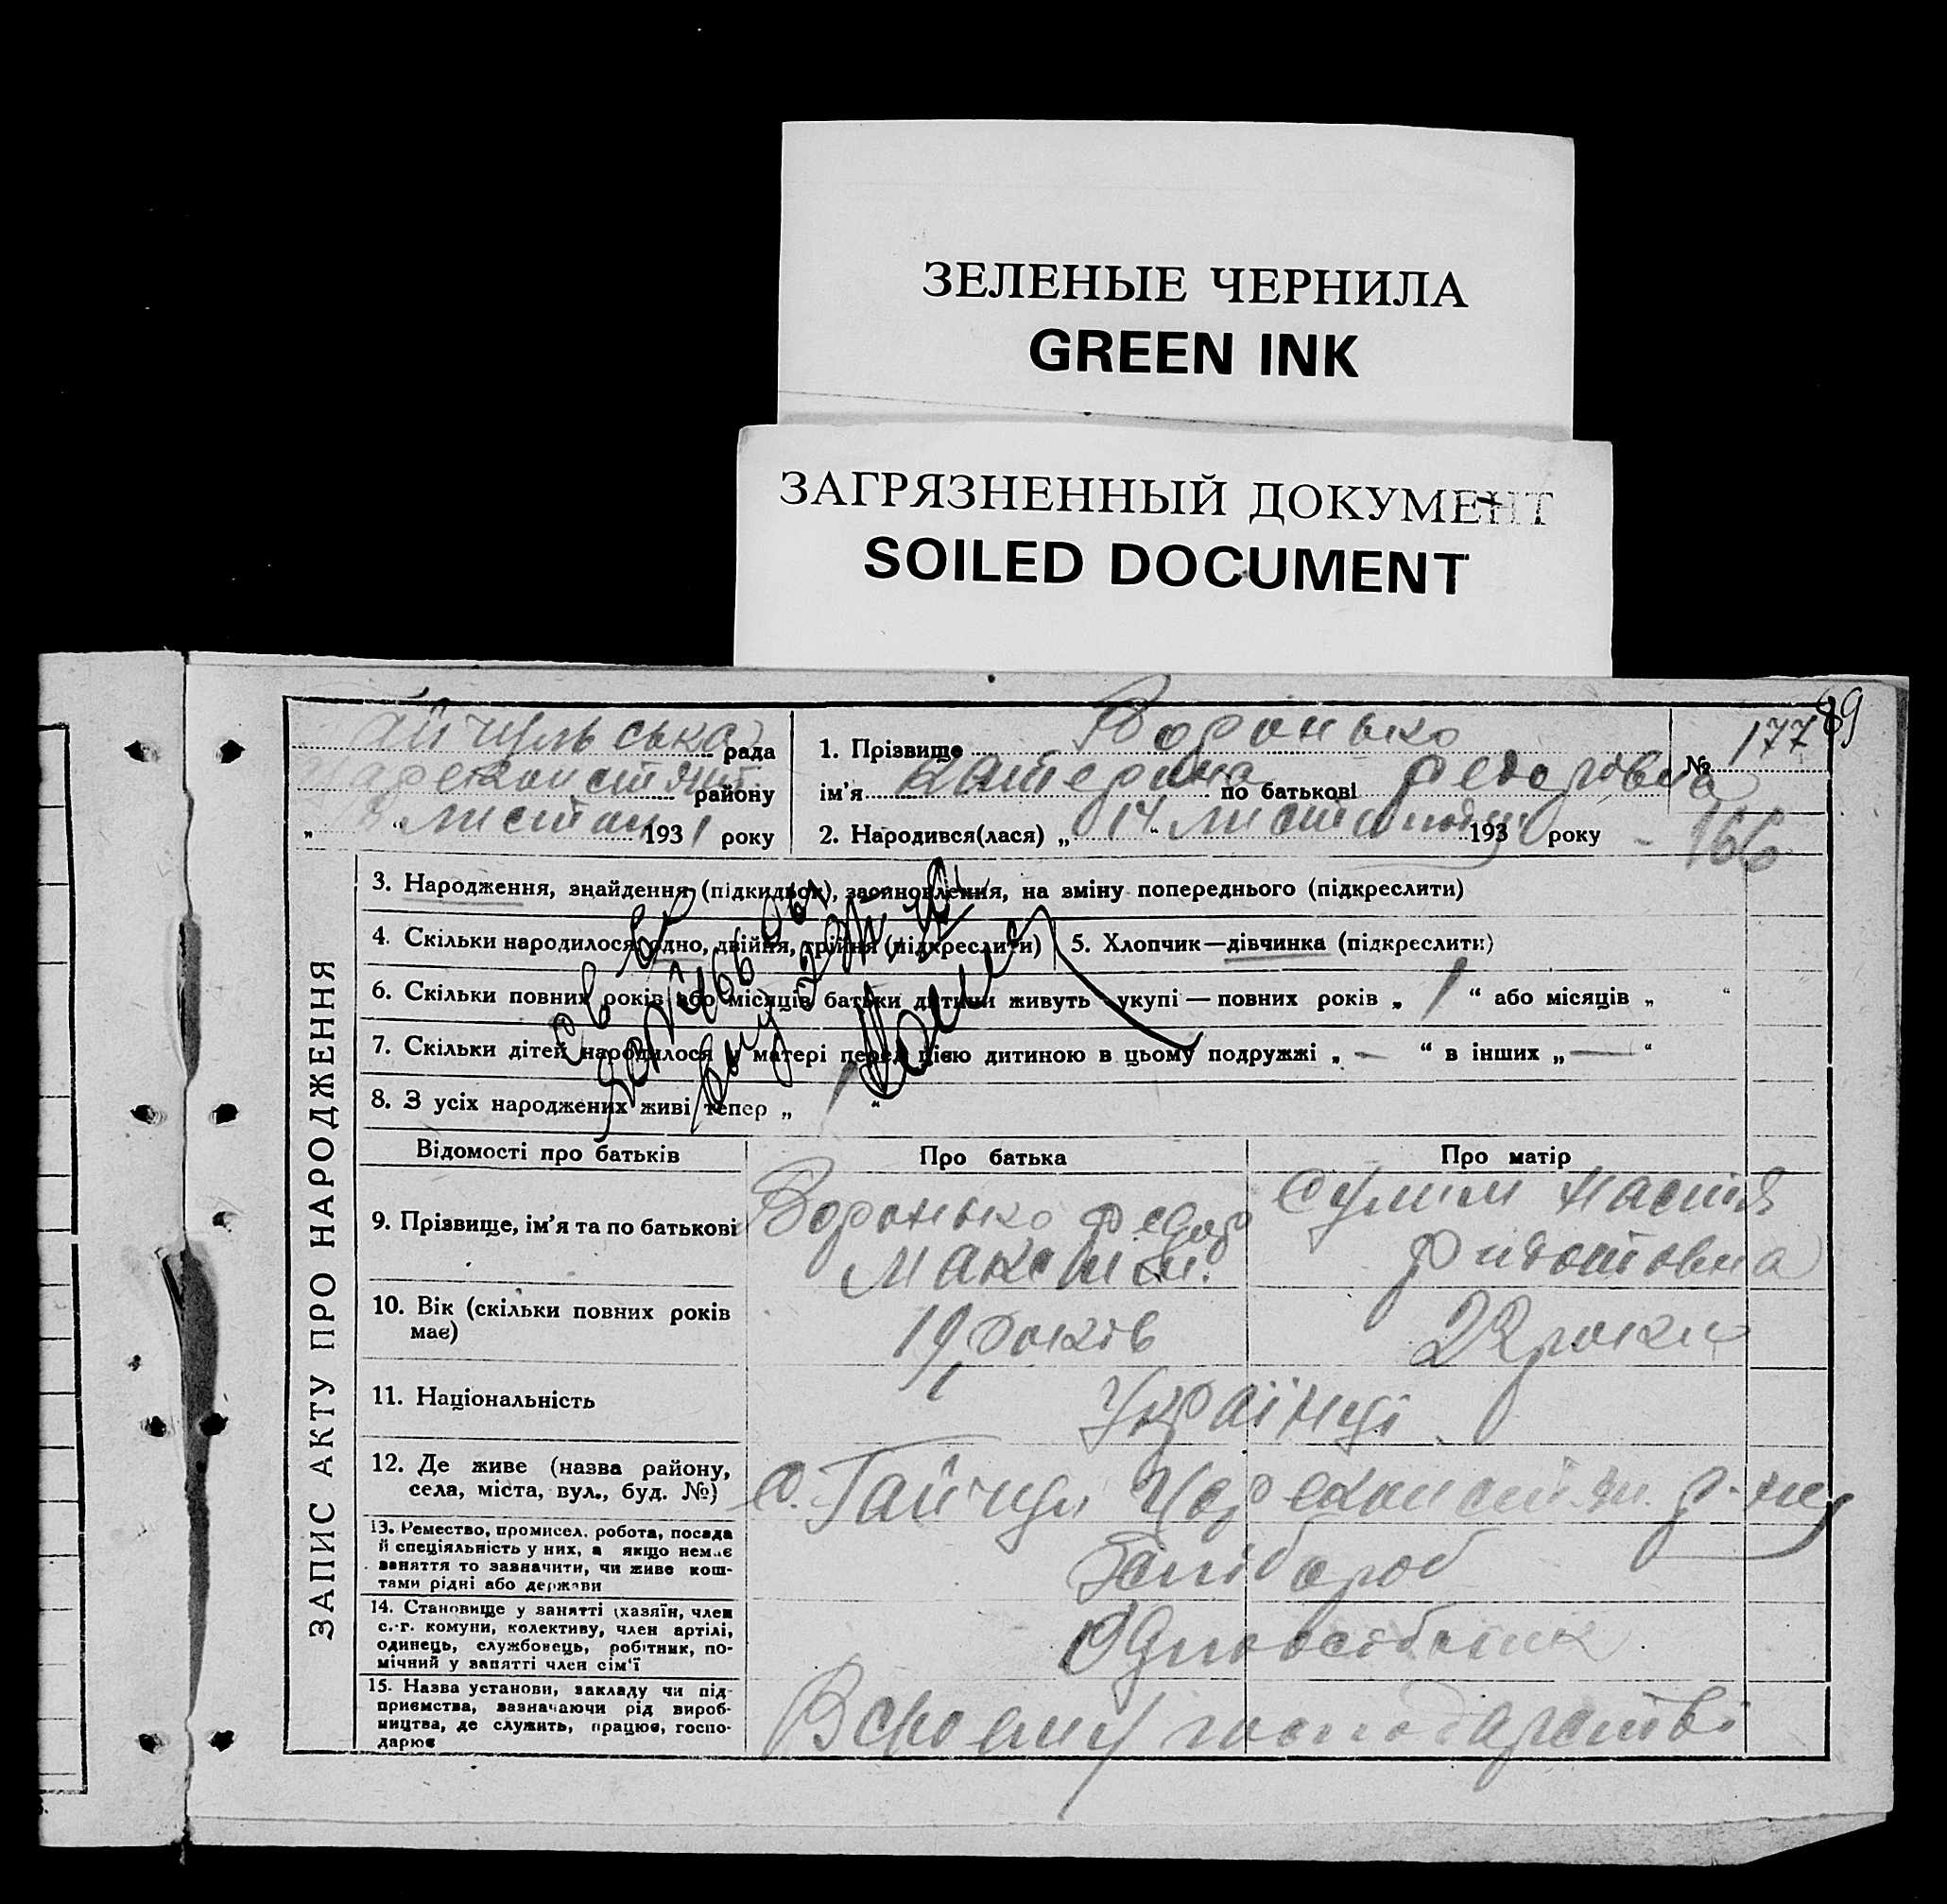 ЗЕЛЕНЫЕ ЧЕРНИЛА
GREEN INK
ЗАГРЯЗНЕННЫЙ ДОКУМЕНТ
SOILED DOCUMENT
89
Гайчульська рада
району
" листоп 1931 року
1. Прізвище Воронько
№ 177
ім'я Катерина по батькові Федоровна
2. Народився(лася) „ 14 " листопада 193 року
- 166
ЗАПИС АКТУ ПРО НАРОДЖЕННЯ
3. Народження, знайдення (підкидьок), засиновлення, на зміну попереднього (підкреслити)
4. Скільки народилося: одно, двійня, трійня (підкреслити)
5. Хлопчик—дівчинка (підкреслити)
6. Скільки повних років або місяців батьки дитини живуть укупі — повних років „ 1 “ або місяців „ “
7. Скільки дітей народилося у матері перед цією дитиною в цьому подружжі „ — “ в інших „ — “
8. З усіх народжених живі тепер „ 1 “
Відомості про батьків
Про батька
Про матір
9. Прізвище, ім'я та по батькові
Воронько Федор
Максим.
Сулим Настя
Фидотовна
10. Вік (скільки повних років має)
19 років
22 роки
11. Національність
Українці
12. Де живе (назва району, села, міста, вул., буд. №)
с. Гайчул Цареконстян. р-ну
13. Ремество, промисел, робота, посада
й спеціяльність у них, а якщо немає
заняття то зазначити, чи живе кош-
тами рідні або держави
Хлібороб
14. Становище у занятті (хазяїн, член
с.-г. комуни, колективу, член артілі,
одинець, службовець, робітник, по-
мічний у занятті член сім'ї
Одноосібник
15. Назва установи, закладу чи під-
приємства, зазначаючи рід вироб-
ництва, де служить, працює, госпо-
дарює
В своему господарстві